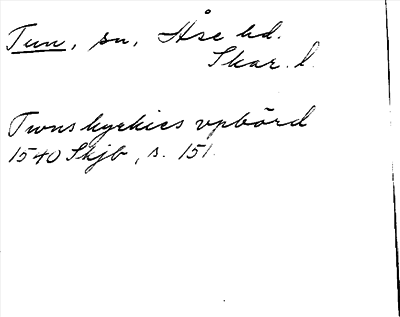 Tun, sn, Åse hd.
Skar. l.
Twns kyrkies vpbörd
1540 Skjb, s. 151.